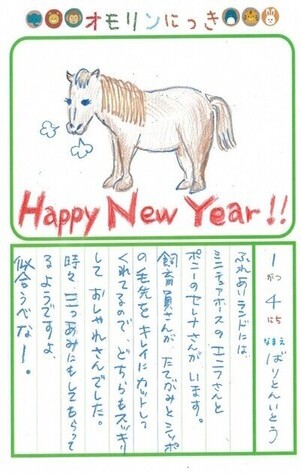 オモリンにっき
Happy New Year!!
1がつ4にち なまえ ばりとんいとう
ふれあいランドには、
ミニチュアホースのエニフさんと
ポニーのセレナさんがいます。
飼育員さんが、たてがみとシッポ
の毛先をキレイにカットして
くれてるので、どちらもスッキリ
しておしゃれさんでした。
時々、三つあみにもしてもらって
るようですよ。
似合うべな！。